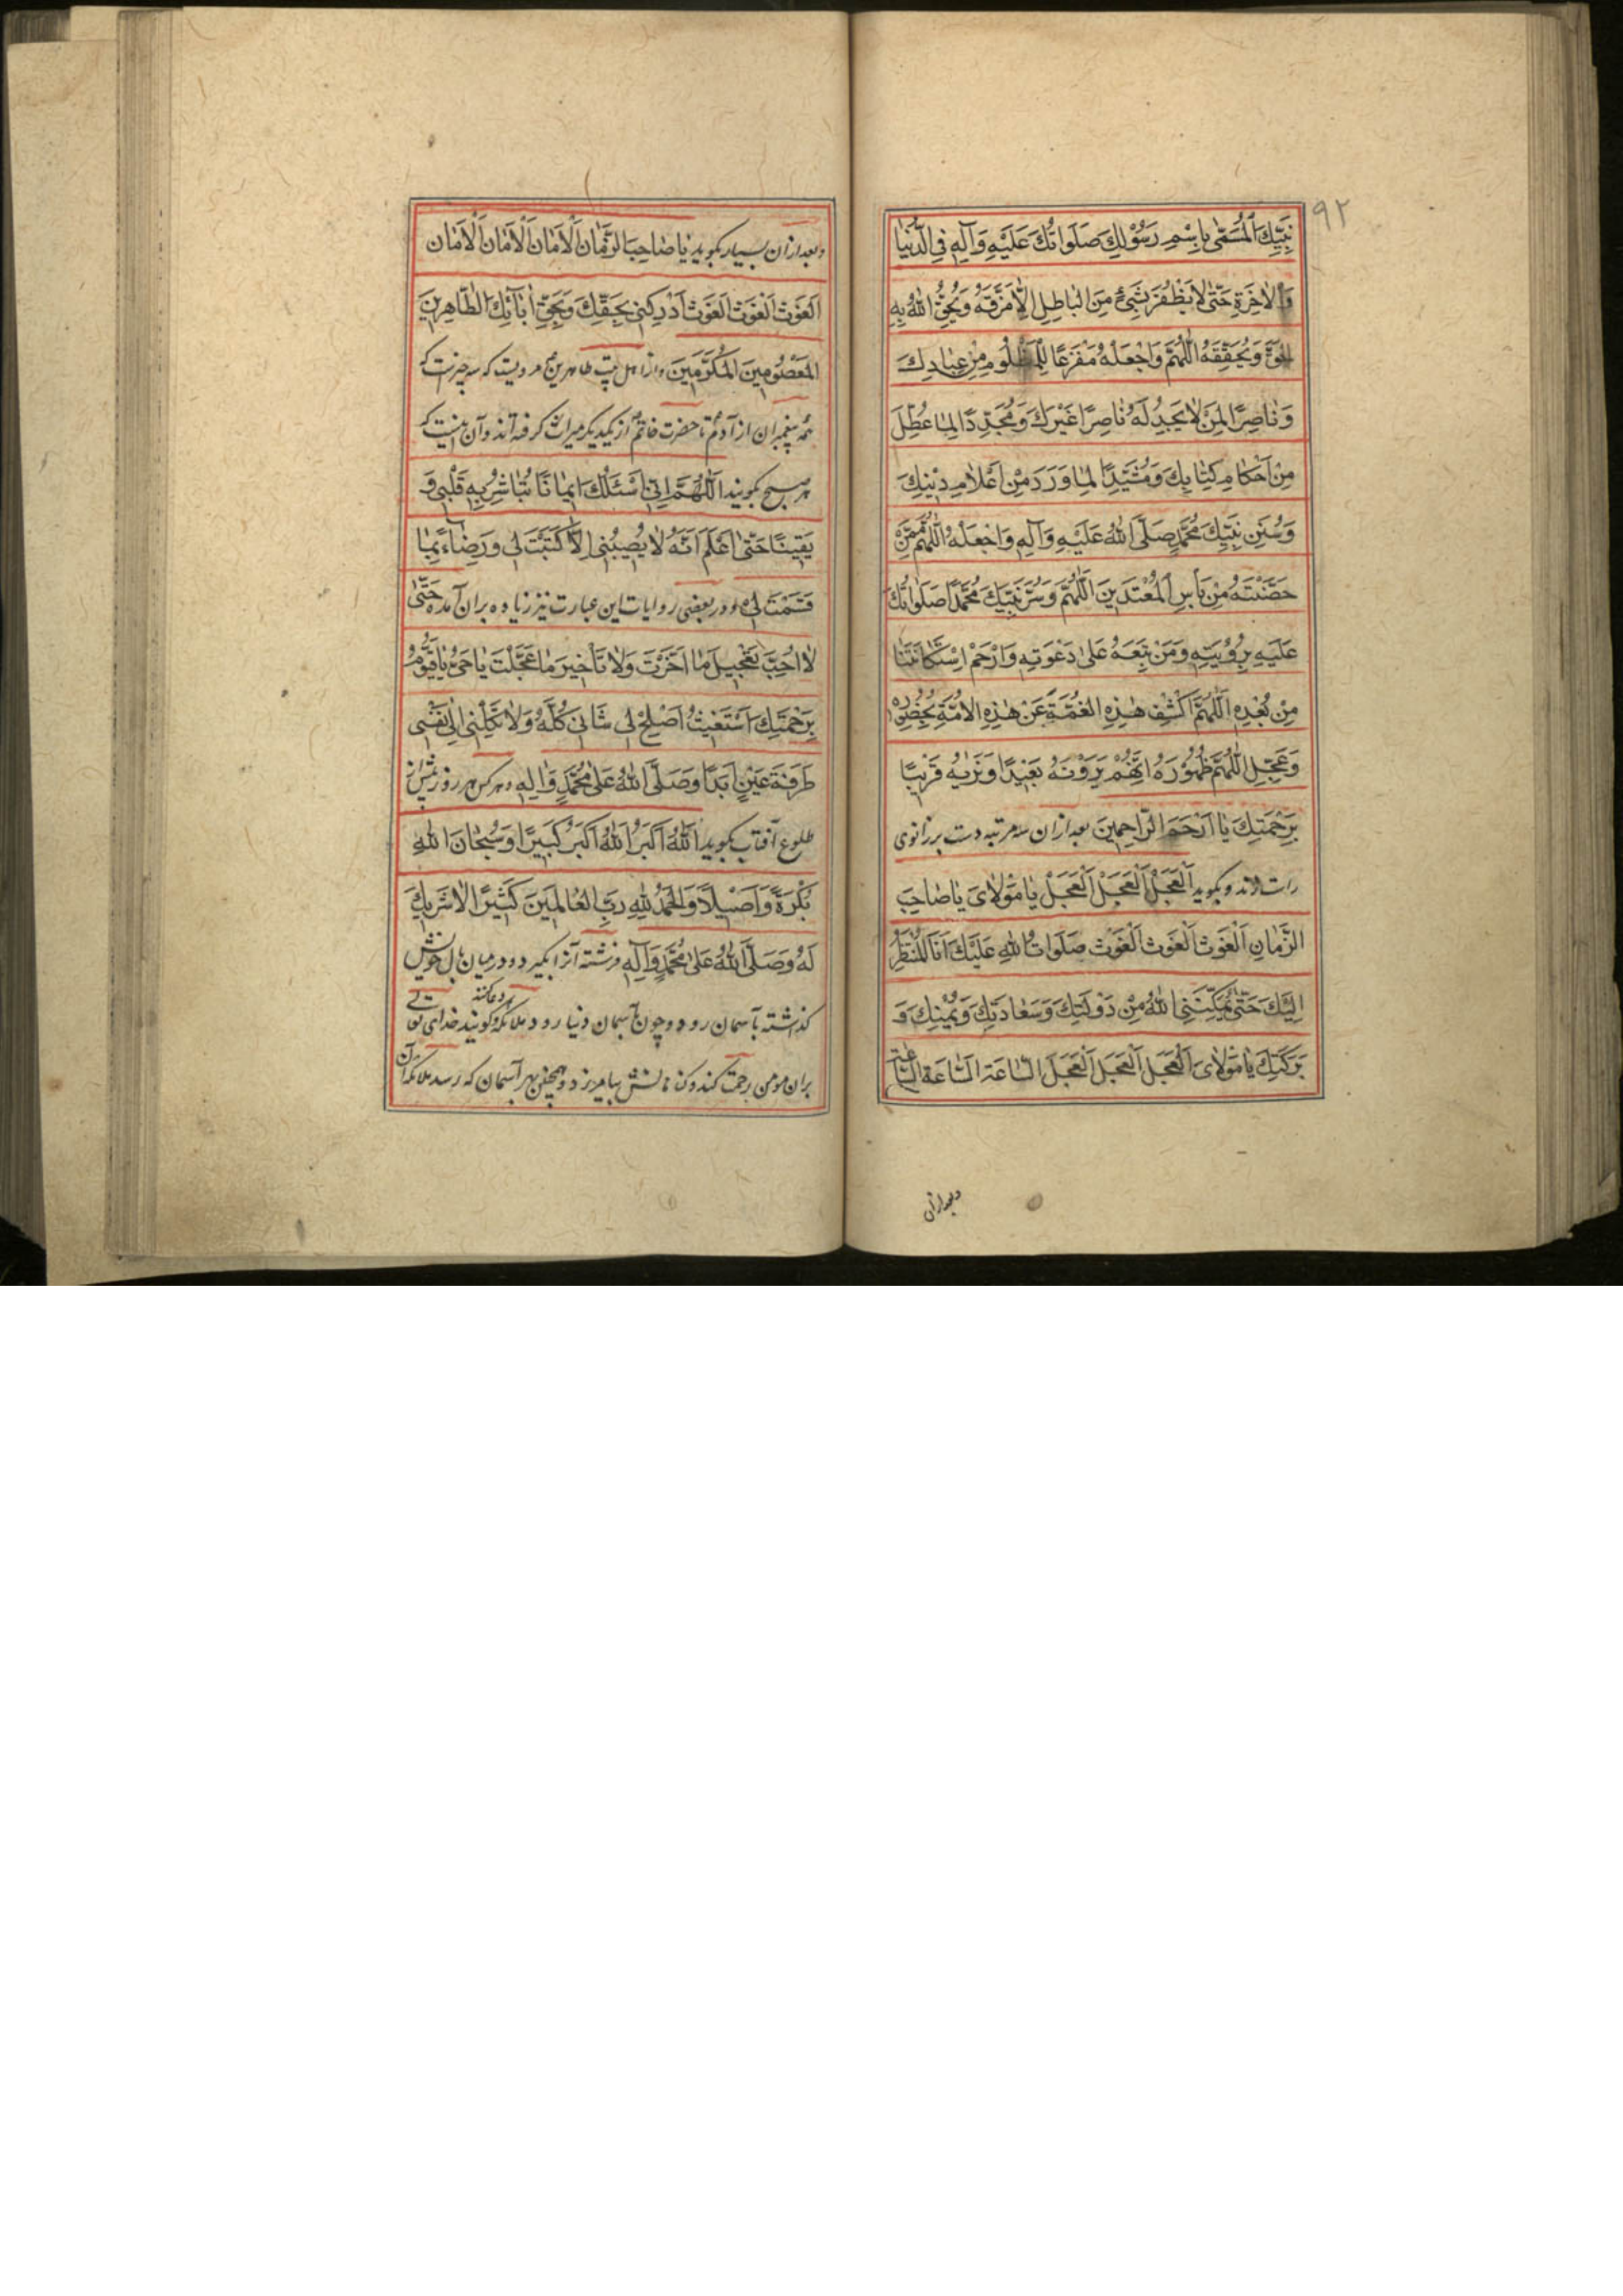 ٩٢
نَبِيِّكَ الْمُسَمّٰى بِاسْمِ رَسُوْلِكَ صَلَوَاتُكَ عَلَيْهِ وَآلِهٖ فِى الدُّنْيَا
وَالْاٰخِرَةِ حَتّٰى لَا يَظْفُرَ بِشَىْءٍ مِنَ الْبَاطِلِ اِلَّا مَزَّقَهُ وَيُحِقَّ اللّٰهُ بِهِ
الْحَقَّ وَيُحَقِّقَهُ اللّٰهُمَّ وَاجْعَلْهُ مَفْزَعًا لِلْمَظْلُومِ مِنْ عِبَادِكَ
وَنَاصِرًا لِمَنْ لَا يَجِدُ لَهُ نَاصِرًا غَيْرَكَ وَمُجَدِّدًا لِمَا عُطِّلَ
مِنْ اَحْكَامِ كِتَابِكَ وَمُشَيِّدًا لِمَا وَرَدَ مِنْ اَعْلَامِ دِيْنِكَ
وَسُنَنِ نَبِيِّكَ مُحَمَّدٍ صَلَّى اللّٰهُ عَلَيْهِ وَآلِهٖ وَاجْعَلْهُ اللّٰهُمَّ مِمَّنْ
حَصَّنْتَهُ مِنْ بَأْسِ الْمُعْتَدِيْنَ اللّٰهُمَّ وَسُرَّ نَبِيَّكَ مُحَمَّدًا صَلَوَاتُكَ
عَلَيْهِ بِرُؤْيَتِهٖ وَمَنْ تَبِعَهُ عَلٰى دَعْوَتِهٖ وَارْحَمْ اسْتِكَانَتَنَا
مِنْ بُعْدِهٖ اَللّٰهُمَّ اكْشِفْ هٰذِهِ الْغُمَّةَ عَنْ هٰذِهِ الْاُمَّةِ بِحُضُوْرِهٖ
وَعَجِّلِ اللّٰهُمَّ ظُهُوْرَهُ اِنَّهُمْ يَرَوْنَهُ بَعِيْدًا وَنَرٰيهُ قَرِيْبًا
بِرَحْمَتِكَ يَا اَرْحَمَ الرَّاحِمِيْنَ بعد ازان سه مرتبه دست بر زانوى
راست زند و بگويد اَلْعَجَلْ اَلْعَجَلْ اَلْعَجَلْ يَا مَوْلَاىَ يَا صَاحِبَ
الزَّمَانِ اَلْغَوَث اَلْغَوَث اَلْغَوَث صَلَوَاتُ اللّٰهِ عَلَيْكَ اَنَا الْمُنْتَظِرُ
اِلَيْكَ حَتّٰى يُمَكِّنَنِى اللّٰهُ مِنْ دَوْلَتِكَ وَسَعَادَتِكَ وَيُمْنِكَ وَ
بَرَكَتِكَ يَا مَوْلَاىَ اَلْعَجَلَ اَلْعَجَلَ اَلْعَجَلَ السَّاعَةَ السَّاعَةَ السَّاعَةَ
وبعد ازان
وبعد ازان بسيار بگويد يَا صَاحِبَ الزَّمَان اَلْاَمَان اَلْاَمَان اَلْاَمَان
الغَوَث الغَوَث الغَوَث اَدْرِكْنِى بِحَقِّكَ وَبِحَقِّ اٰبَآئِكَ الطَّاهِرِيْنَ
الْمَعْصُوْمِيْنَ الْمُكَرَّمِيْنَ و از اهل بيت طاهرين مرويست كه سه چيزست كه
همه پيغمبران از آدم تا حضرت خاتم از يكديگر ميراث گرفته اند و آن اينست كه
هر صبح بگويند اَللّٰهُمَّ اِنِّى اَسْئَلُكَ اِيْمَانًا تُبَاشِرُ بِهٖ قَلْبِى وَ
يَقِيْنًا حَتّٰى اَعْلَمَ اَنَّهُ لَا يُصِيْبُنِى اِلَّا مَا كَتَبْتَ لِى وَرِضَاءً بِمَا
قَسَمْتَ لِى و در بعضى روايات اين عبارت نيز زياده بران آمده حَتّٰى
لَا اُحِبَّ تَعْجِيْلَ مَا اَخَّرْتَ وَلَا تَأْخِيْرَ مَا عَجَّلْتَ يَا حَىُّ يَا قَيُّوْمُ
بِرَحْمَتِكَ اَسْتَغِيْثُ اَصْلِحْ لِى شَانِى كُلَّهُ وَلَا تَكِلْنِى اِلٰى نَفْسِى
طَرْفَةَ عَيْنٍ اَبَدًا وَصَلَّى اللّٰهُ عَلٰى مُحَمَّدٍ وَاٰلِهٖ و هر كس هر روز پيش از
طلوع آفتاب بگويد اَللّٰهُ اَكْبَرُ اَللّٰهُ اَكْبَرُ كَبِيْرًا وَسُبْحَانَ اللّٰهِ
بُكْرَةً وَاَصِيْلًا وَالْحَمْدُ لِلّٰهِ رَبِّ الْعَالَمِيْنَ كَثِيْرًا لَا شَرِيْكَ
لَهُ وَصَلَّى اللّٰهُ عَلٰى مُحَمَّدٍ وَآلِهٖ فرشته آنرا بگيرد و در ميان بال خويش
گذاشته بآسمان رود و چون بآسمان دنيا رود ملائكه گويند خداى تعالى
بران مومن رحمت كند و گناهانش بيامرزد و همچنين بهر آسمان كه رسد ملائكه آن